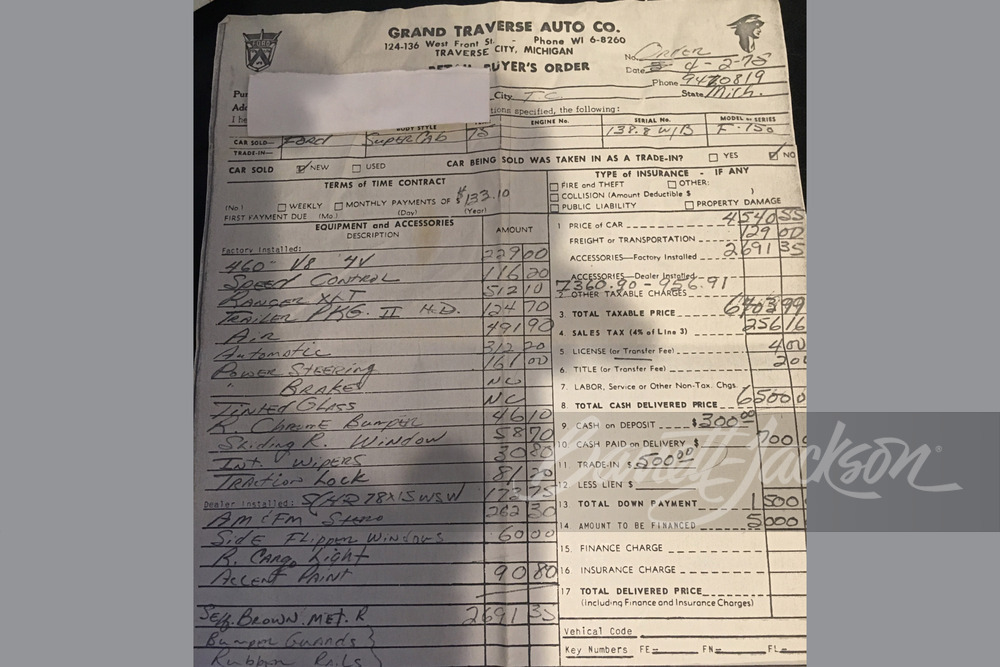 GRAND TRAVERSE AUTO CO.
124-136 West Front St. - Phone WI 6-8260
TRAVERSE CITY, MICHIGAN
BUYER'S ORDER
FORD
No. Order
Date 4-2-75
Phone 9470819
City T C State Mich.
I he tions specified, the following:
BODY STYLE ENGINE No. SERIAL No. MODEL or SERIES
CAR SOLD— FORD SuperCab 75 138.8 W/B F-150
TRADE-IN—
CAR SOLD NEW USED CAR BEING SOLD WAS TAKEN IN AS A TRADE-IN? YES NO
TERMS of TIME CONTRACT
(No.) WEEKLY MONTHLY PAYMENTS OF $133.10
FIRST PAYMENT DUE (Mo.) (Day) (Year)
TYPE of INSURANCE - IF ANY
FIRE and THEFT OTHER:
COLLISION (Amount Deductible $ )
PUBLIC LIABILITY PROPERTY DAMAGE
EQUIPMENT and ACCESSORIES
DESCRIPTION AMOUNT
Factory installed:
460- V8 4V 229 00
Speed Control 116 20
Ranger XLT 512 10
Trailer PKG. II H.D. 124 70
Air 491 90
Automatic 312 20
Power Steering 161 00
" Brakes NC
Tinted Glass NC
R. Chrome Bumper 46 10
Sliding R. Window 58 70
Int. Wipers 30 80
Traction Lock 81 20
Dealer installed: 78x15 WSW 172 75
AM & FM Stereo 262 30
Side Flipper Windows 60 00
R. Cargo Light
Accent Paint 90 80
Brown Met. R 2691 35
Bumper Guards }
Rubber Rails }
1 PRICE of CAR 4540 55
FREIGHT or TRANSPORTATION 129 00
ACCESSORIES—Factory Installed 2691 35
ACCESSORIES—Dealer Installed
7360.90 - 956.91
2. OTHER TAXABLE CHARGES
3. TOTAL TAXABLE PRICE 6403 99
4. SALES TAX (4% of Line 3) 256 16
5. LICENSE (or Transfer Fee) 4 00
6. TITLE (or Transfer Fee) 2 00
7. LABOR, Service or Other Non-Tax. Chgs.
8. TOTAL CASH DELIVERED PRICE 6500 0
9. CASH on DEPOSIT $300.00
10. CASH PAID on DELIVERY $ 700 0
11. TRADE-IN $ 500.00
12 LESS LIEN $
13 TOTAL DOWN PAYMENT 1500
14 AMOUNT TO BE FINANCED 5000
15. FINANCE CHARGE
16. INSURANCE CHARGE
17 TOTAL DELIVERED PRICE
(Including Finance and Insurance Charges)
Vehical Code
Key Numbers FE— FN— FL—
Barrett-Jackson